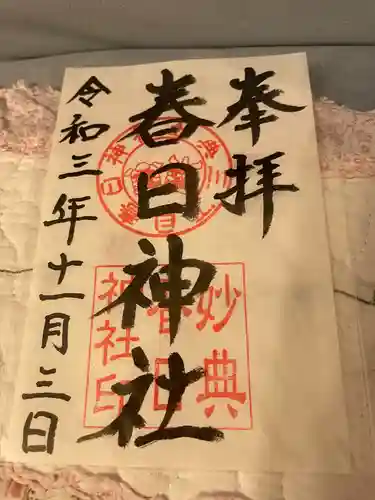 奉拝
春日神社
妙典
春日
神社印
令和三年十一月三日